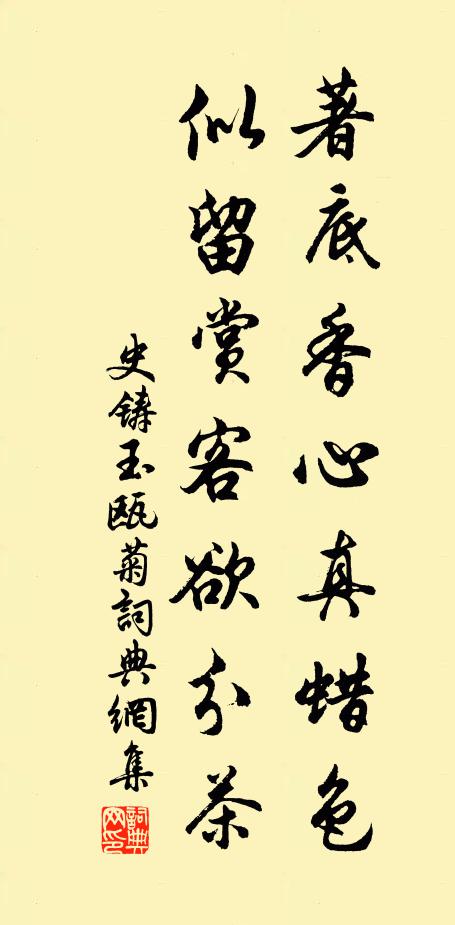 著底香心真蜡色
似留賞客欲分茶
史鑄玉甌菊詞典網集
詞典网印